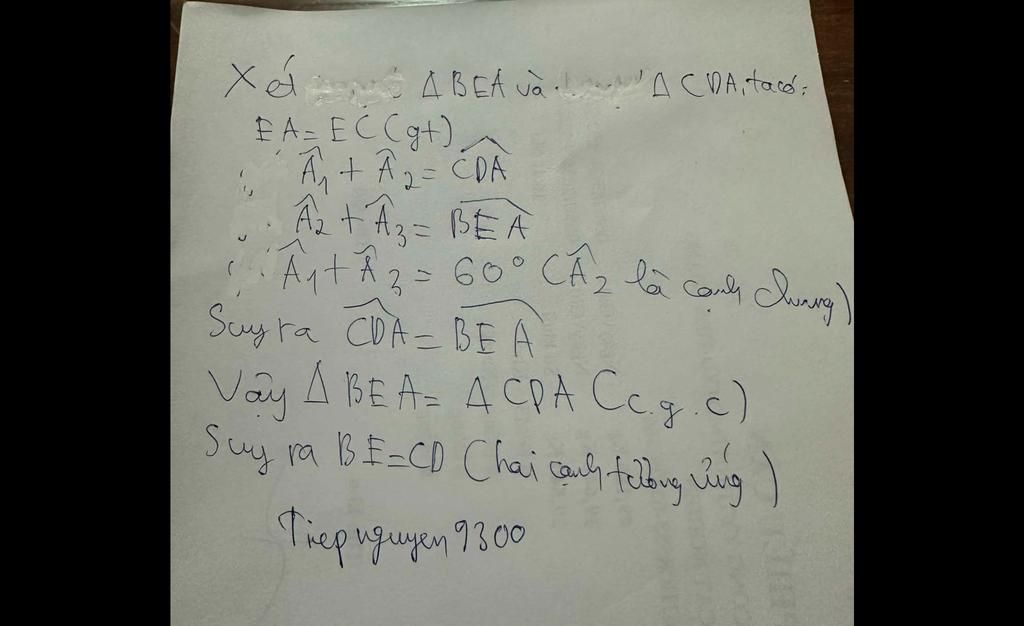 Xét Δ BEA và Δ CDA, ta có:
EA = EC (gt)
Â1 + Â2 = \widehat{CDA}
Â2 + Â3 = \widehat{BEA}
Â1 + Â3 = 60° (Â2 là cạnh chung)
Suy ra \widehat{CDA} = \widehat{BEA}
Vậy Δ BEA = Δ CDA (c.g.c)
Suy ra BE = CD (hai cạnh tương ứng)
Tiepnguyen9300